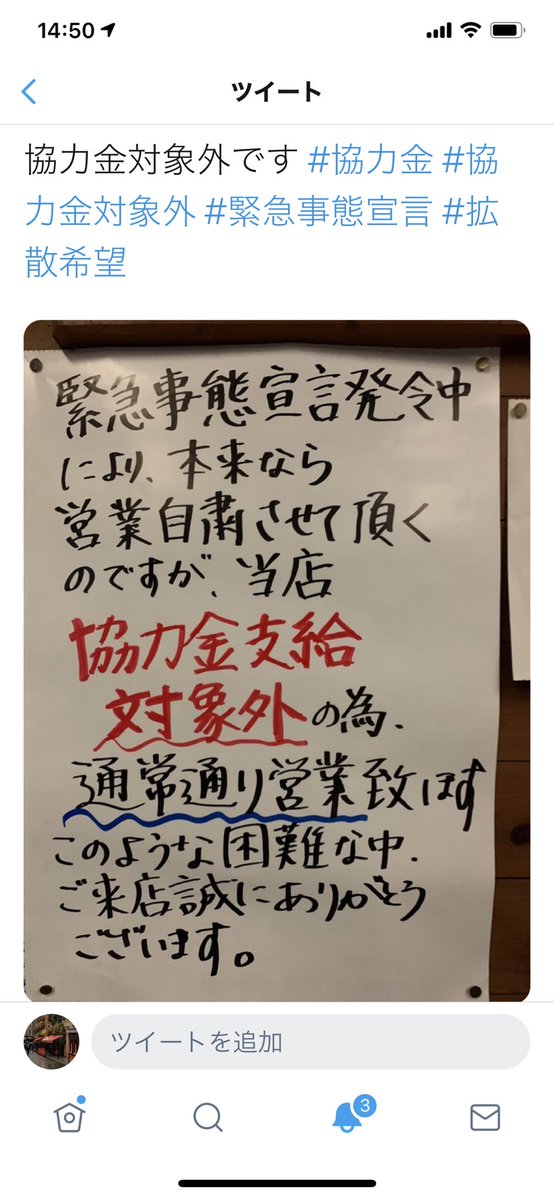 14:50
ツイート
協力金対象外です #協力金 #協
力金対象外 #緊急事態宣言 #拡
散希望
緊急事態宣言発令中
により、本来なら
営業自粛させて頂く
のですが、当店
協力金支給
対象外の為、
通常通り営業致します
このような困難な中、
ご来店誠にありがとう
ございます。
ツイートを追加
3